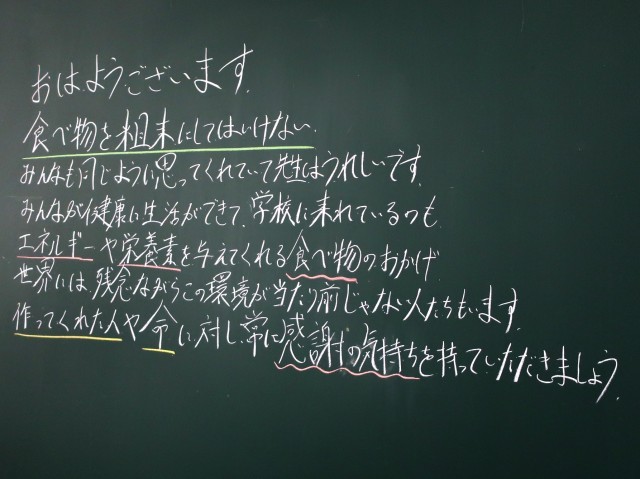 おはようございます。
食べ物を粗末にしてはいけない。
みんなも同じように思ってくれていて先生はうれしいです。
みんなが健康に生活ができて、学校に来れているのも
エネルギーや栄養素を与えてくれる食べ物のおかげ
世界には、残念ながらこの環境が当たり前じゃない人たちもいます。
作ってくれた人や命に対し、常に感謝の気持ちを持っていただきましょう。